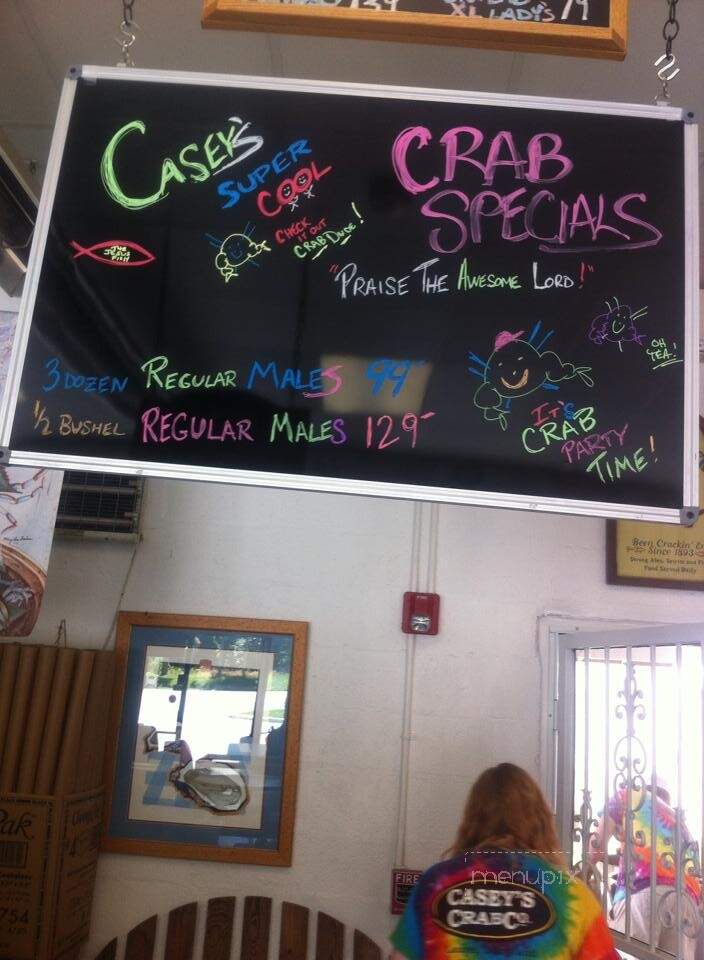 XL LADYS
CASEY'S
SUPER
COOL
CHECK
IT OUT
CRAB DUDE!
CRAB
SPECIALS
THE
JESUS
FISH
"PRAISE THE AWESOME LORD!"
OH
YEA!
3 DOZEN REGULAR MALES 99-
1/2 BUSHEL REGULAR MALES 129-
IT'S
CRAB
PARTY
TIME!
Been Crackin'
Since 1893
Strong Ales, Spirits and
Food Served Daily
Pak
754
FIRE
menupix
CASEY'S
CRAB CO.